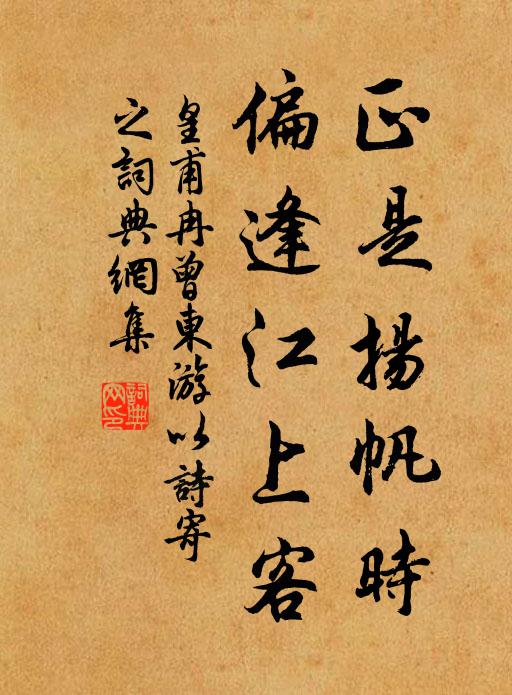 正是揚帆時
偏逢江上客
皇甫冉曾東游以詩寄
之詞典網集
詞典
网印